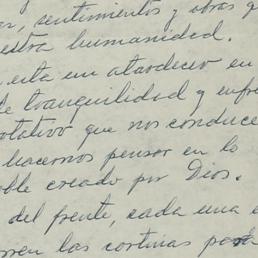 ar, sentimientos y obras q
estra humanidad.
esta un atardecer en
de tranquilidad y enfre
otativo que nos conduce
hacernos pensar en lo
ble creado por Dios.
del frente, cada una e
rren las cortinas para